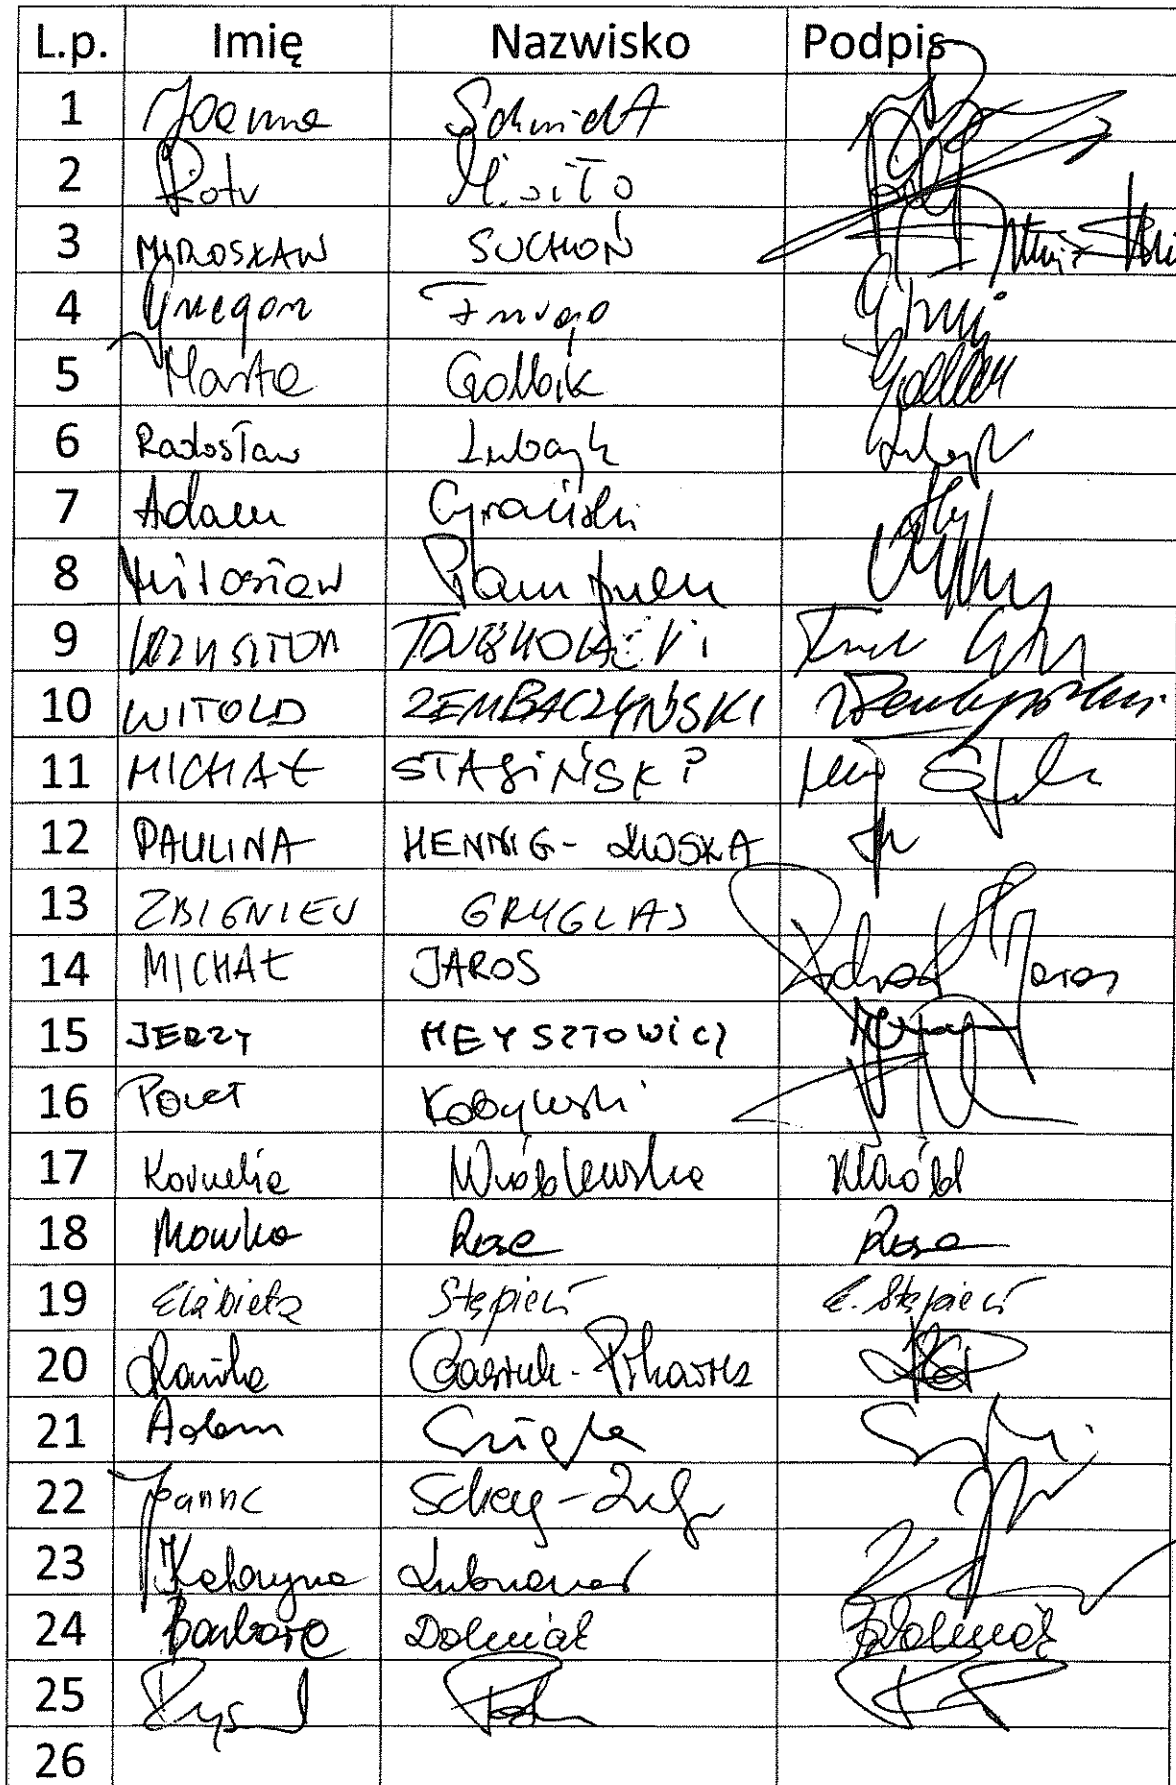 L.p. Imię Nazwisko Podpis
1 Joanna Schmidt
2 Piotr Misiło
3 MIROSŁAW SUCHOŃ
4 Grzegorz Furgo
5 Marta Golbik
6 Radosław Lubczyk
7 Adam Cyrański
8 Mirosław Pampuch
9 KRZYSZTOF TRUSKOLASKI
10 WITOLD ZEMBACZYŃSKI
11 MICHAŁ STASIŃSKI
12 PAULINA HENNIG-KLOSKA
13 ZBIGNIEW GRYGLAS
14 MICHAŁ JAROS
15 JERZY MEYSZTOWICZ
16 Paweł Kobyliński
17 Kornelia Wróblewska
18 Monika Rosa Rosa
19 Elżbieta Stępień E. Stępień
20 Kamila Gasiuk-Pihowicz
21 Adam Szłapka
22 Joanna Scheuring-Wielgus
23 Katarzyna Lubnauer
24 Barbara Dolniak BDolniak
25 Ryszard Petru
26